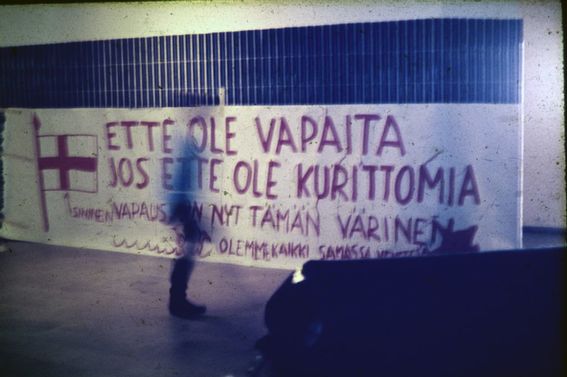 ETTE OLE VAPAITA
JOS ETTE OLE KURITTOMIA
SININEN VAPAUS ON NYT TÄMÄN VÄRINEN
OLEMMEKAIKKI SAMASSA